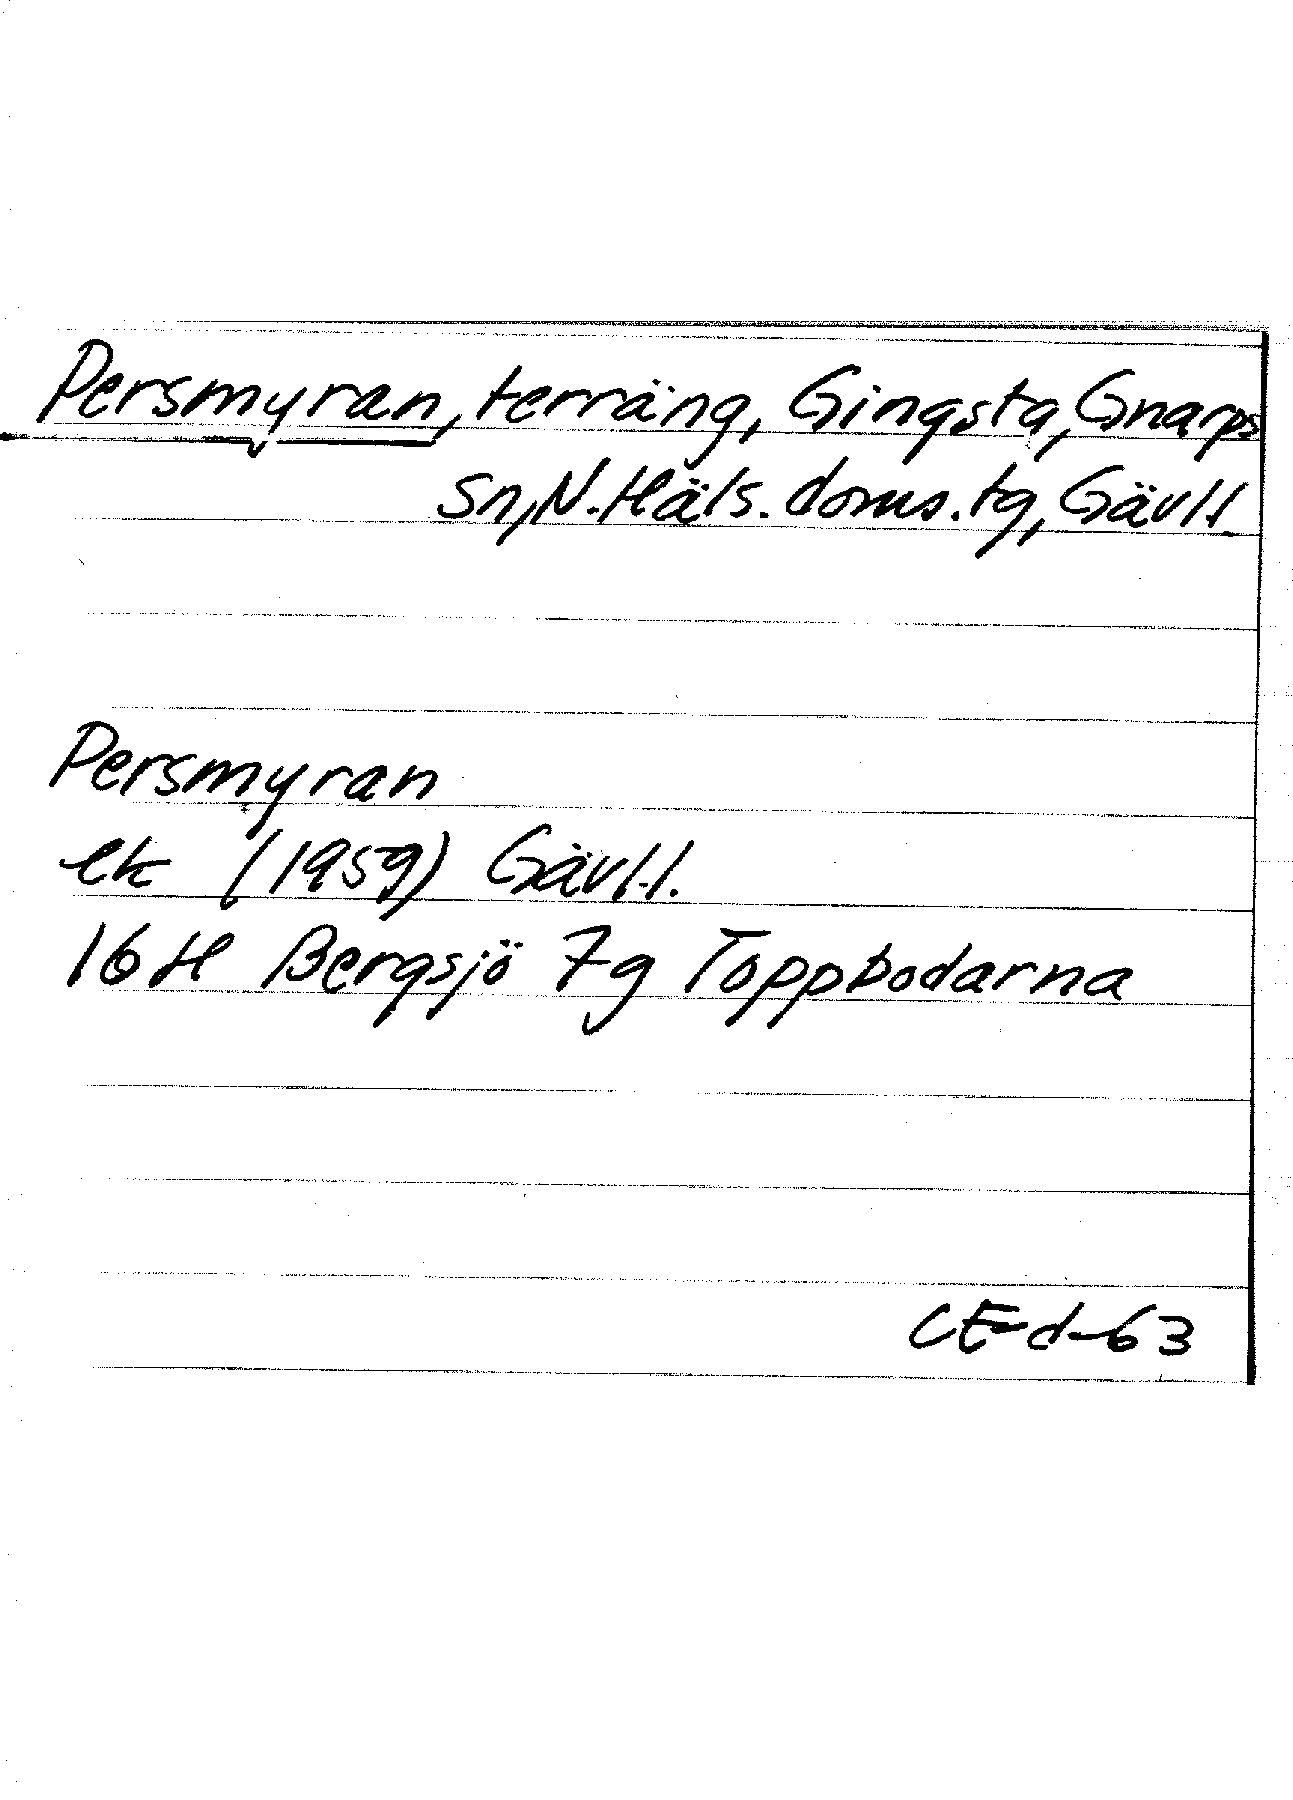 Persmyran, terräng, Gingsta, Gnarps
sn, N. Häls. doms. tg, Gävl.l.
Persmyran
ek (1959) Gävl.l.
16H Bergsjö 7g Toppbodarna
CE-d-63